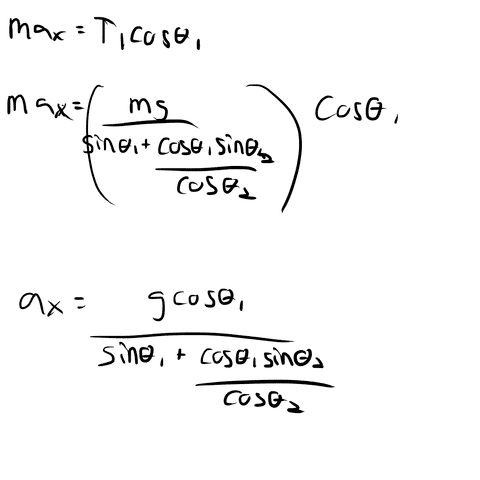 max = T₁cosθ₁
max = (mg / (sinθ₁ + (cosθ₁ sinθ₂ / cosθ₂))) cosθ₁
ax = gcosθ₁ / (sinθ₁ + (cosθ₁ sinθ₂ / cosθ₂))